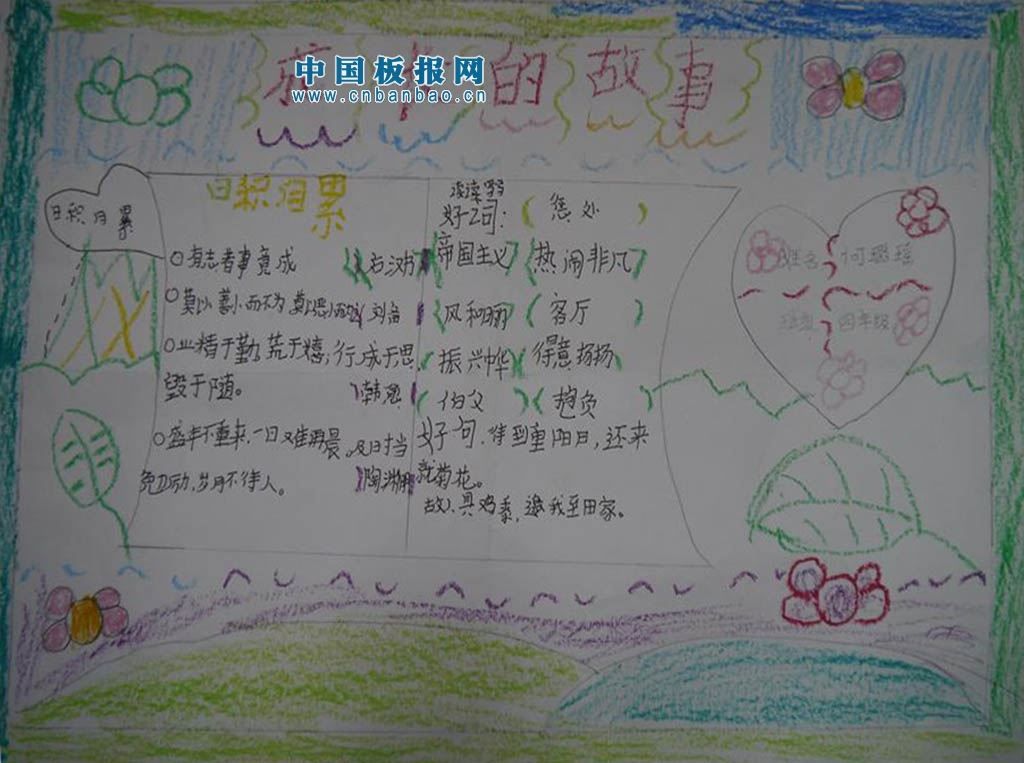 中国板报网
www.cnbanbao.cn
的故事
日积月累
日积月累
有志者事竟成
莫以善小而不为
刘备
业精于勤,荒于嬉,行成于思
毁于随。
韩愈
盛年不重来,一日难再晨。及日当
勉励,岁月不待人。
陶渊明
读读写写
好词:(惩处)
(帝国主义)(热闹非凡)
(风和丽)(客厅)
(振兴中华)(得意扬扬)
(伯父)(抱负)
好句:待到重阳日,还来
就菊花。
故人具鸡黍,邀我至田家。
姓名 何璐瑶
班级 四年级